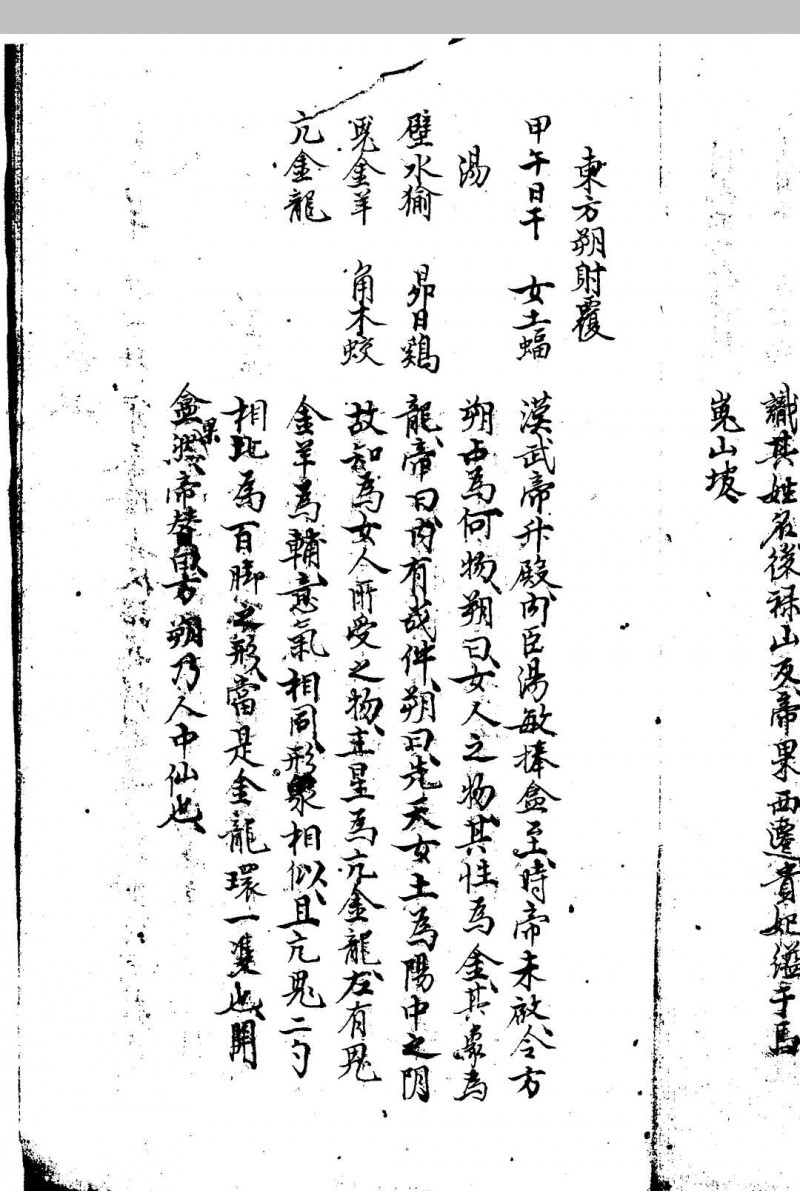 識其姓名後祿山反帝果西遷貴妃縊于馬
嵬山坡
東方朔射覆
甲午日干　女土蝠
湯
壁水㺄　昴日鷄
鬼金羊　角木蛟
亢金龍
漢武帝升殿内臣湯敏捧盒至時帝未啟令方
朔占為何物朔曰女人之物其性為金其象為
龍帝曰内有幾件朔曰先天女土為陽中之阴
故知為女人所受之物主星為亢金龍左有鬼
金羊為輔意氣相同形象相似且亢鬼二勺
相比為百脚之形當是金龍環一隻也開
盒果然帝贊曰方朔乃人中仙也